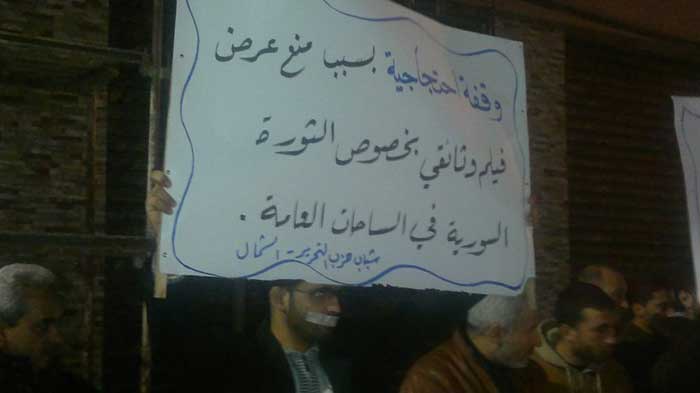 وقفة احتجاجية بسبب منع عرض
فيلم وثائقي بخصوص الثورة
السورية في الساحات العامة .
شباب حزب التحرير - الشمال